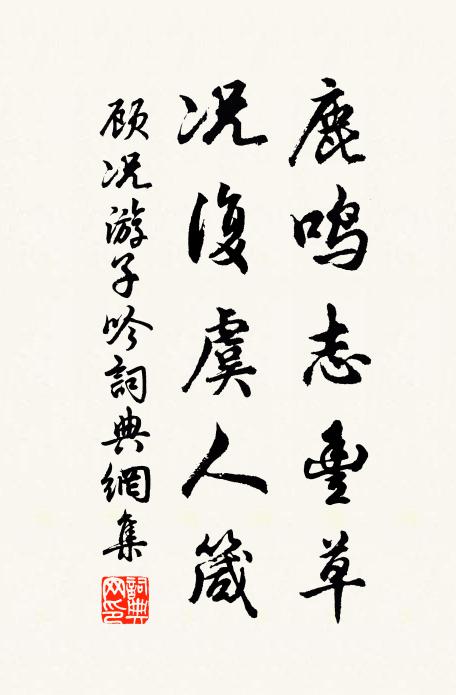 鹿鸣志豐草
况復虞人箴
顾况游子吟詞典網集
詞典网印